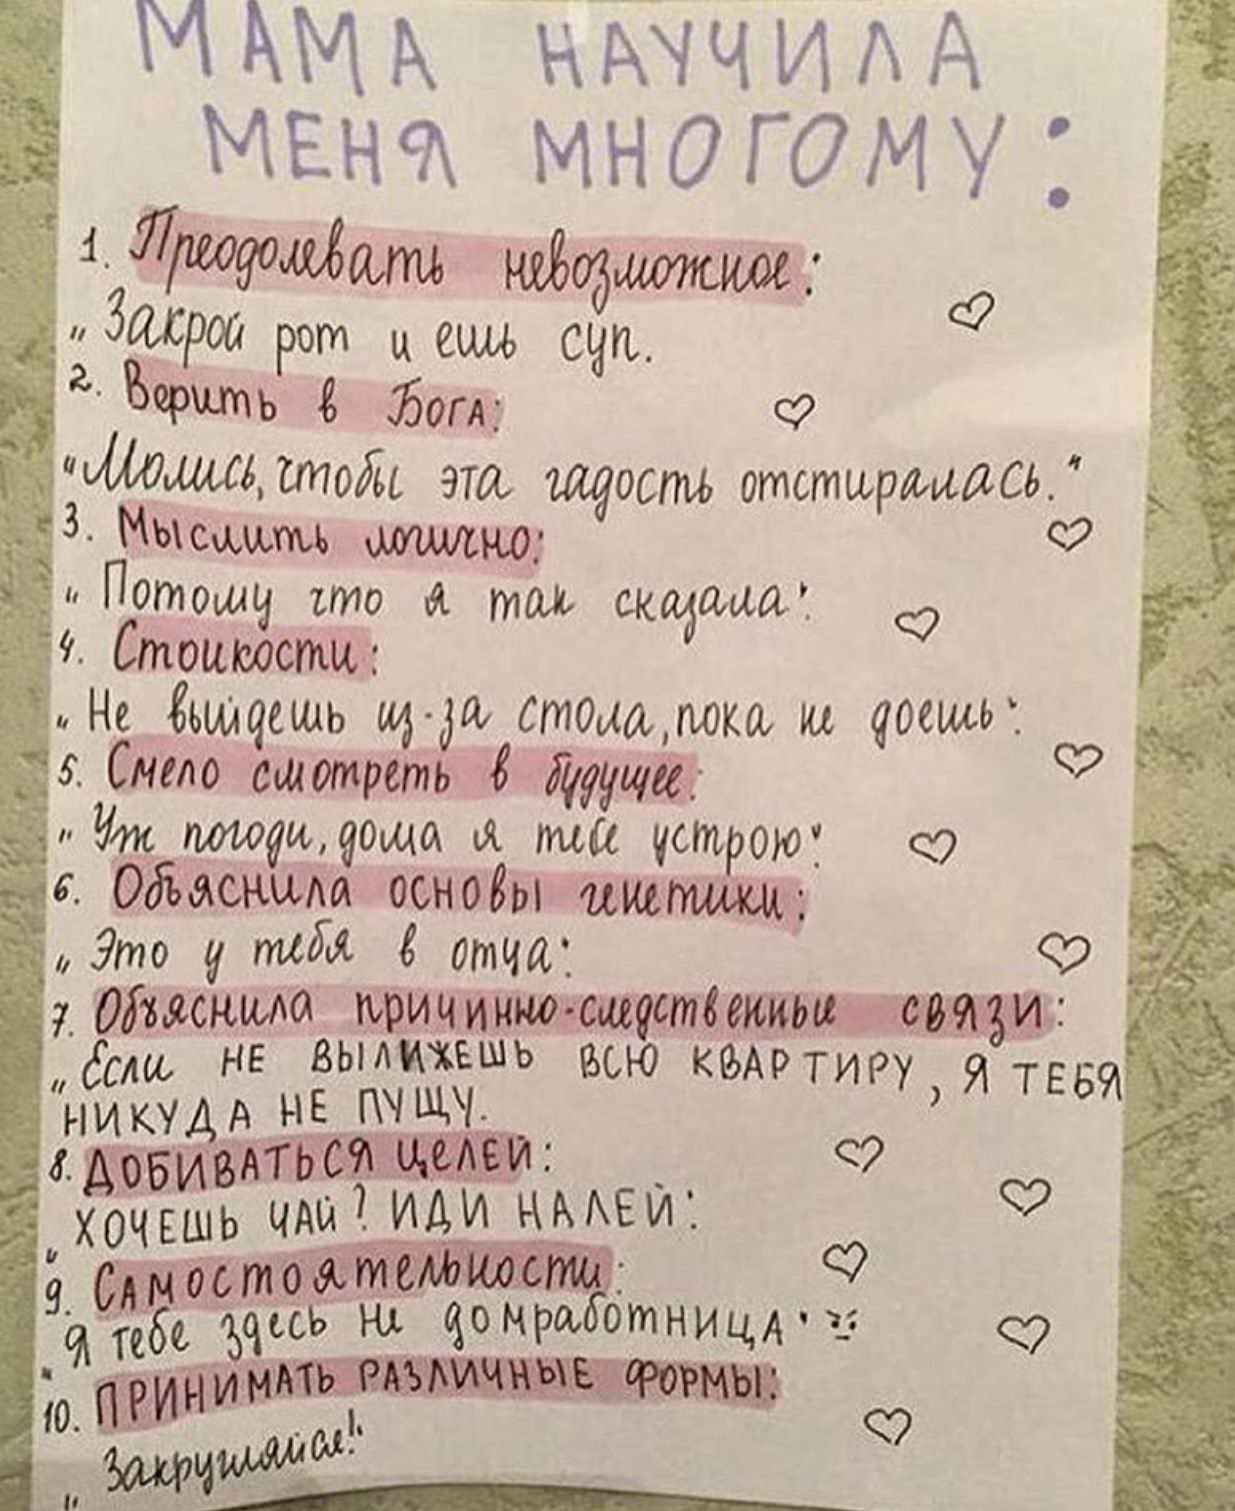 МАМА НАУЧИЛА
МЕНЯ МНОГОМУ:
1. Преодолевать невозможное:
„Закрой рот и ешь суп.
2. Верить в БОГА:
"Молись, чтобы эта гадость отстиралась."
3. Мыслить логично:
„Потому что я так сказала".
4. Стоикости:
„Не выйдешь из-за стола, пока не доешь".
5. Смело смотреть в будущее:
„Уж погоди, дома я тебе устрою".
6. Объяснила основы генетики:
„Это у тебя в отца".
7. Объяснила причинно-следственные связи:
„Если НЕ ВЫЛИЖЕШЬ ВСЮ КВАРТИРУ, Я ТЕБЯ
НИКУДА НЕ ПУЩУ.
8. ДОБИВАТЬСЯ ЦЕЛЕЙ:
„ХОЧЕШЬ ЧАЙ? ИДИ НАЛЕЙ".
9. Самостоятельности:
„Я тебе здесь не домработница"
10. ПРИНИМАТЬ РАЗЛИЧНЫЕ ФОРМЫ:
„Закругляйся!"